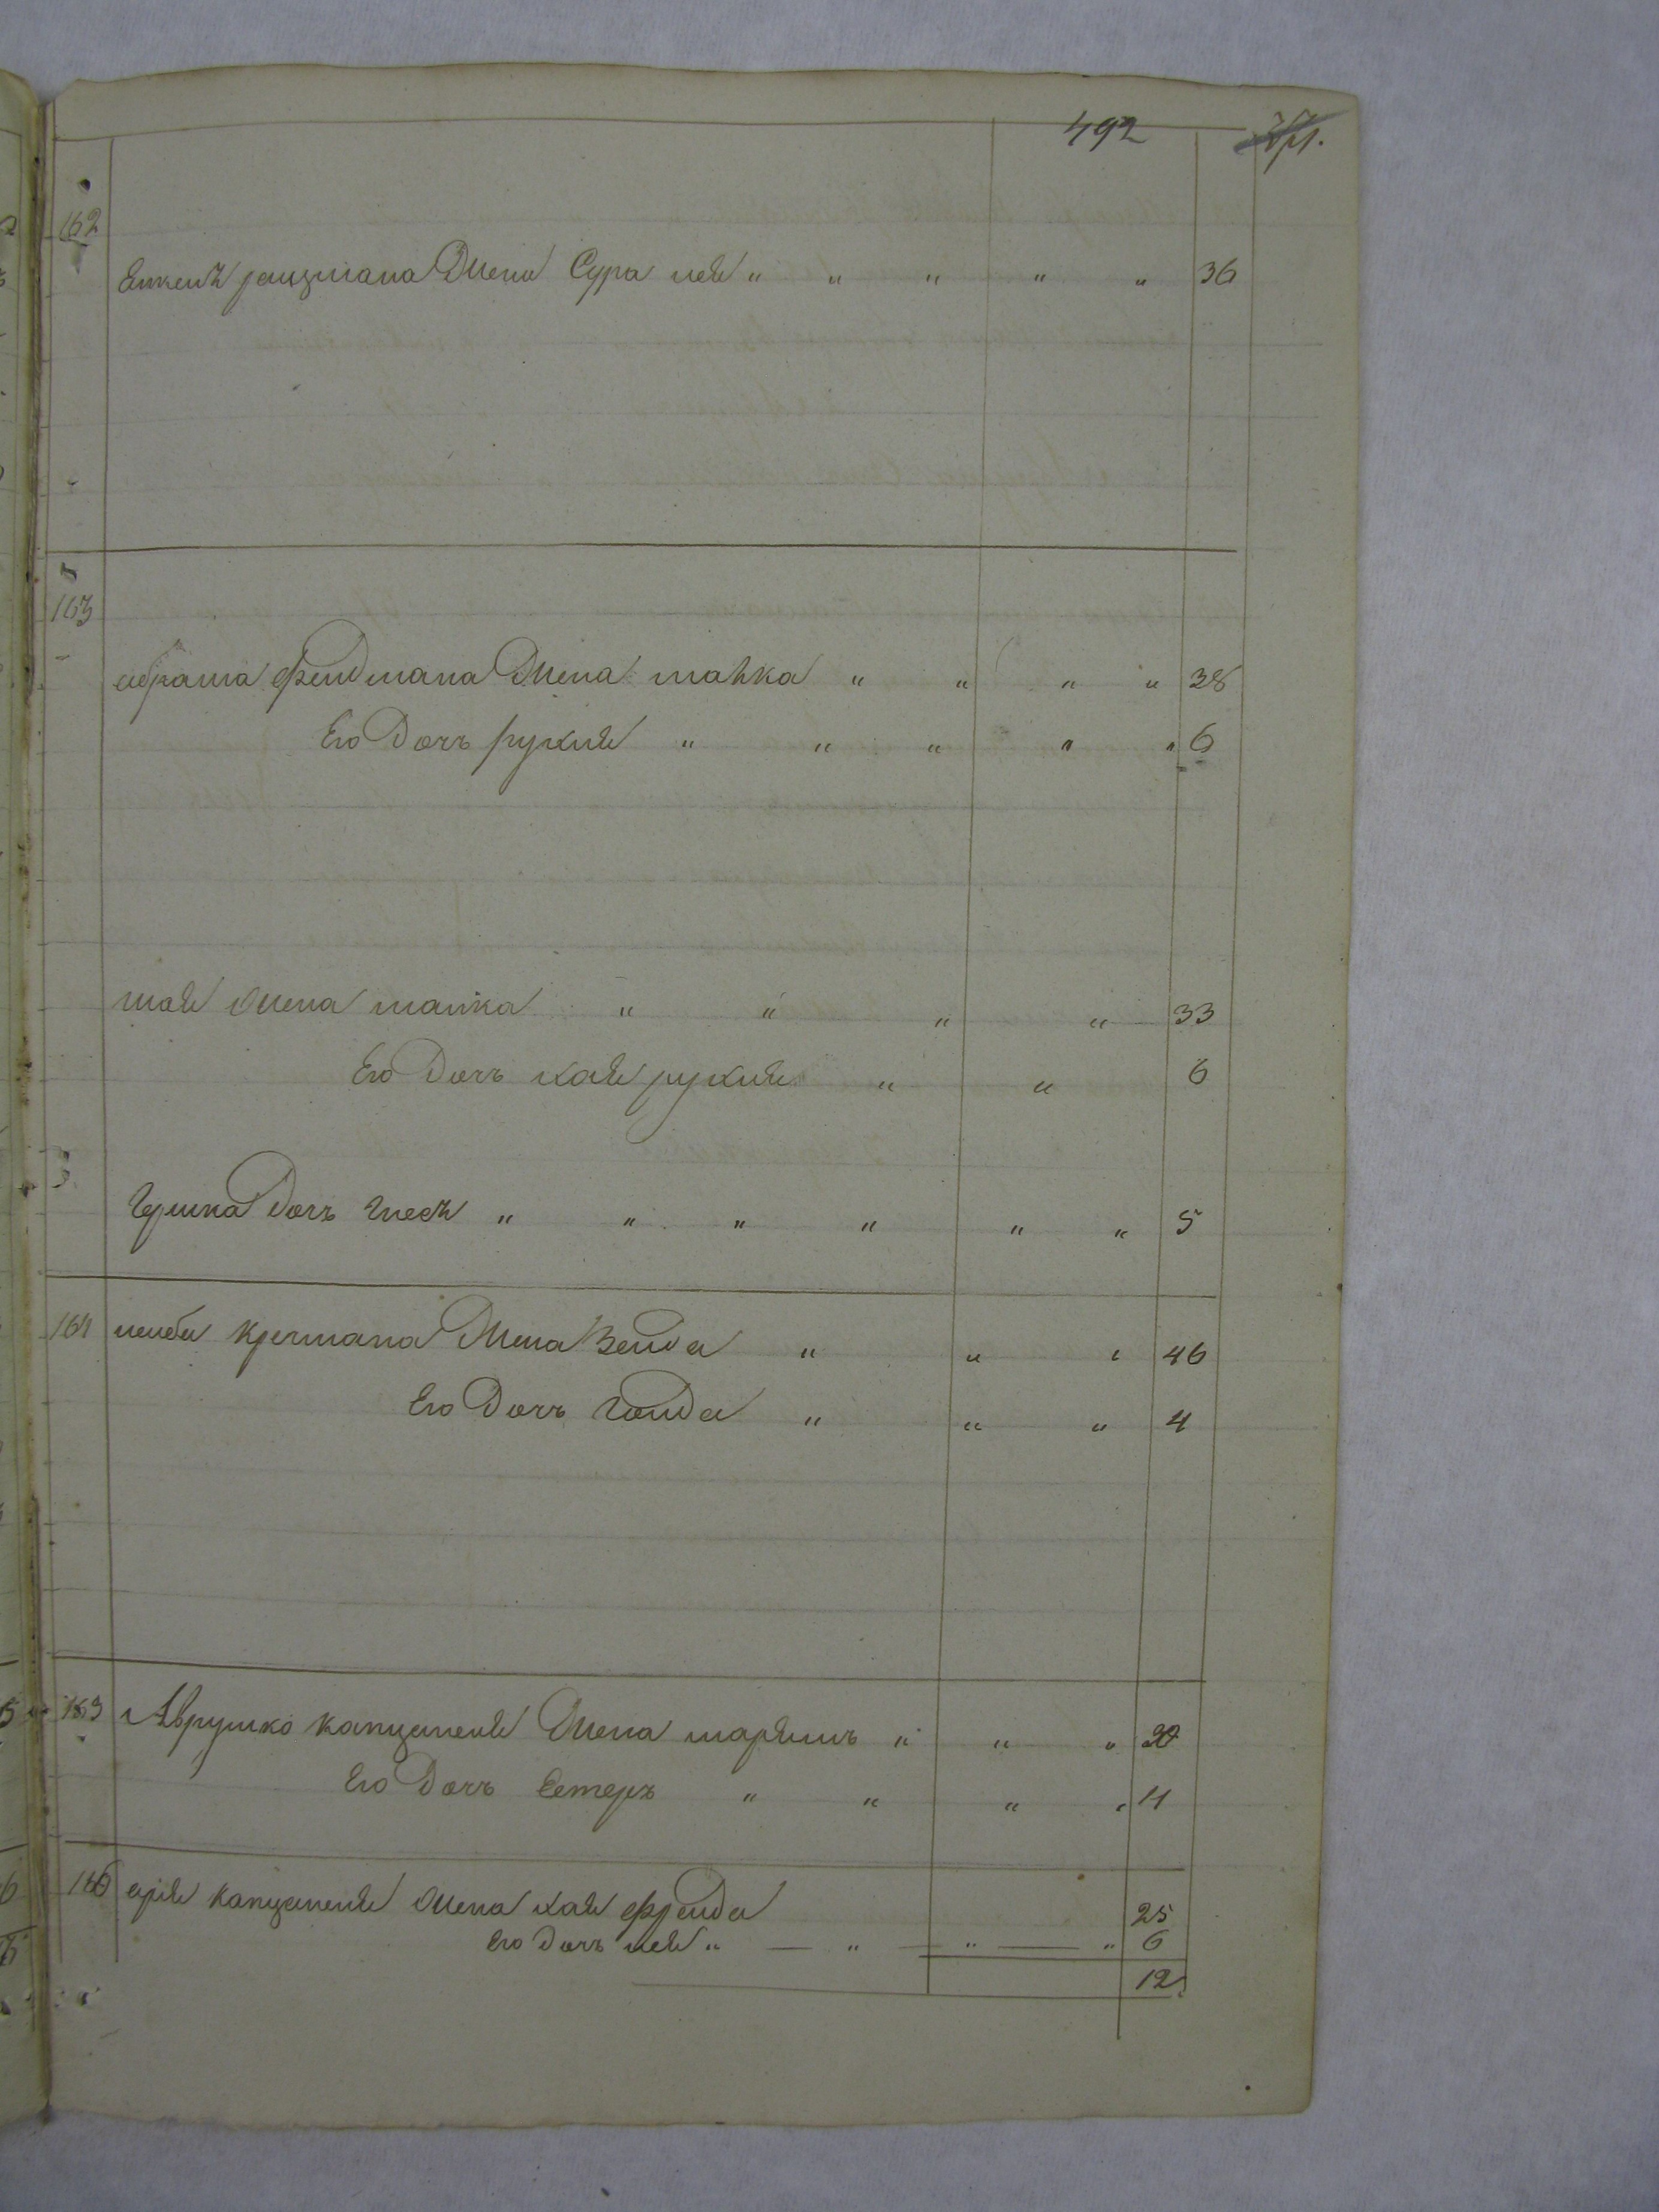 492
162
Янкель рацмана Жена Сура лея " " " " " 36
163
абрама фельдмана Жена малка " " " " 38
Его Дочь рухля " " " " " 6
Жена малка " " " " 33
Его Дочь хая рухля " " 6
Гершка Дочь " " " " " " 5
164 лейба Жена Зельда " " " 46
Его Дочь Голда " " " 4
165 Аврумко капуцепеля Жена марьямь " " "
Его Дочь Естерь " " " " 4
166 арія Жена хая фрейда 25
Его Дочь лея " — " — " — " 6
12